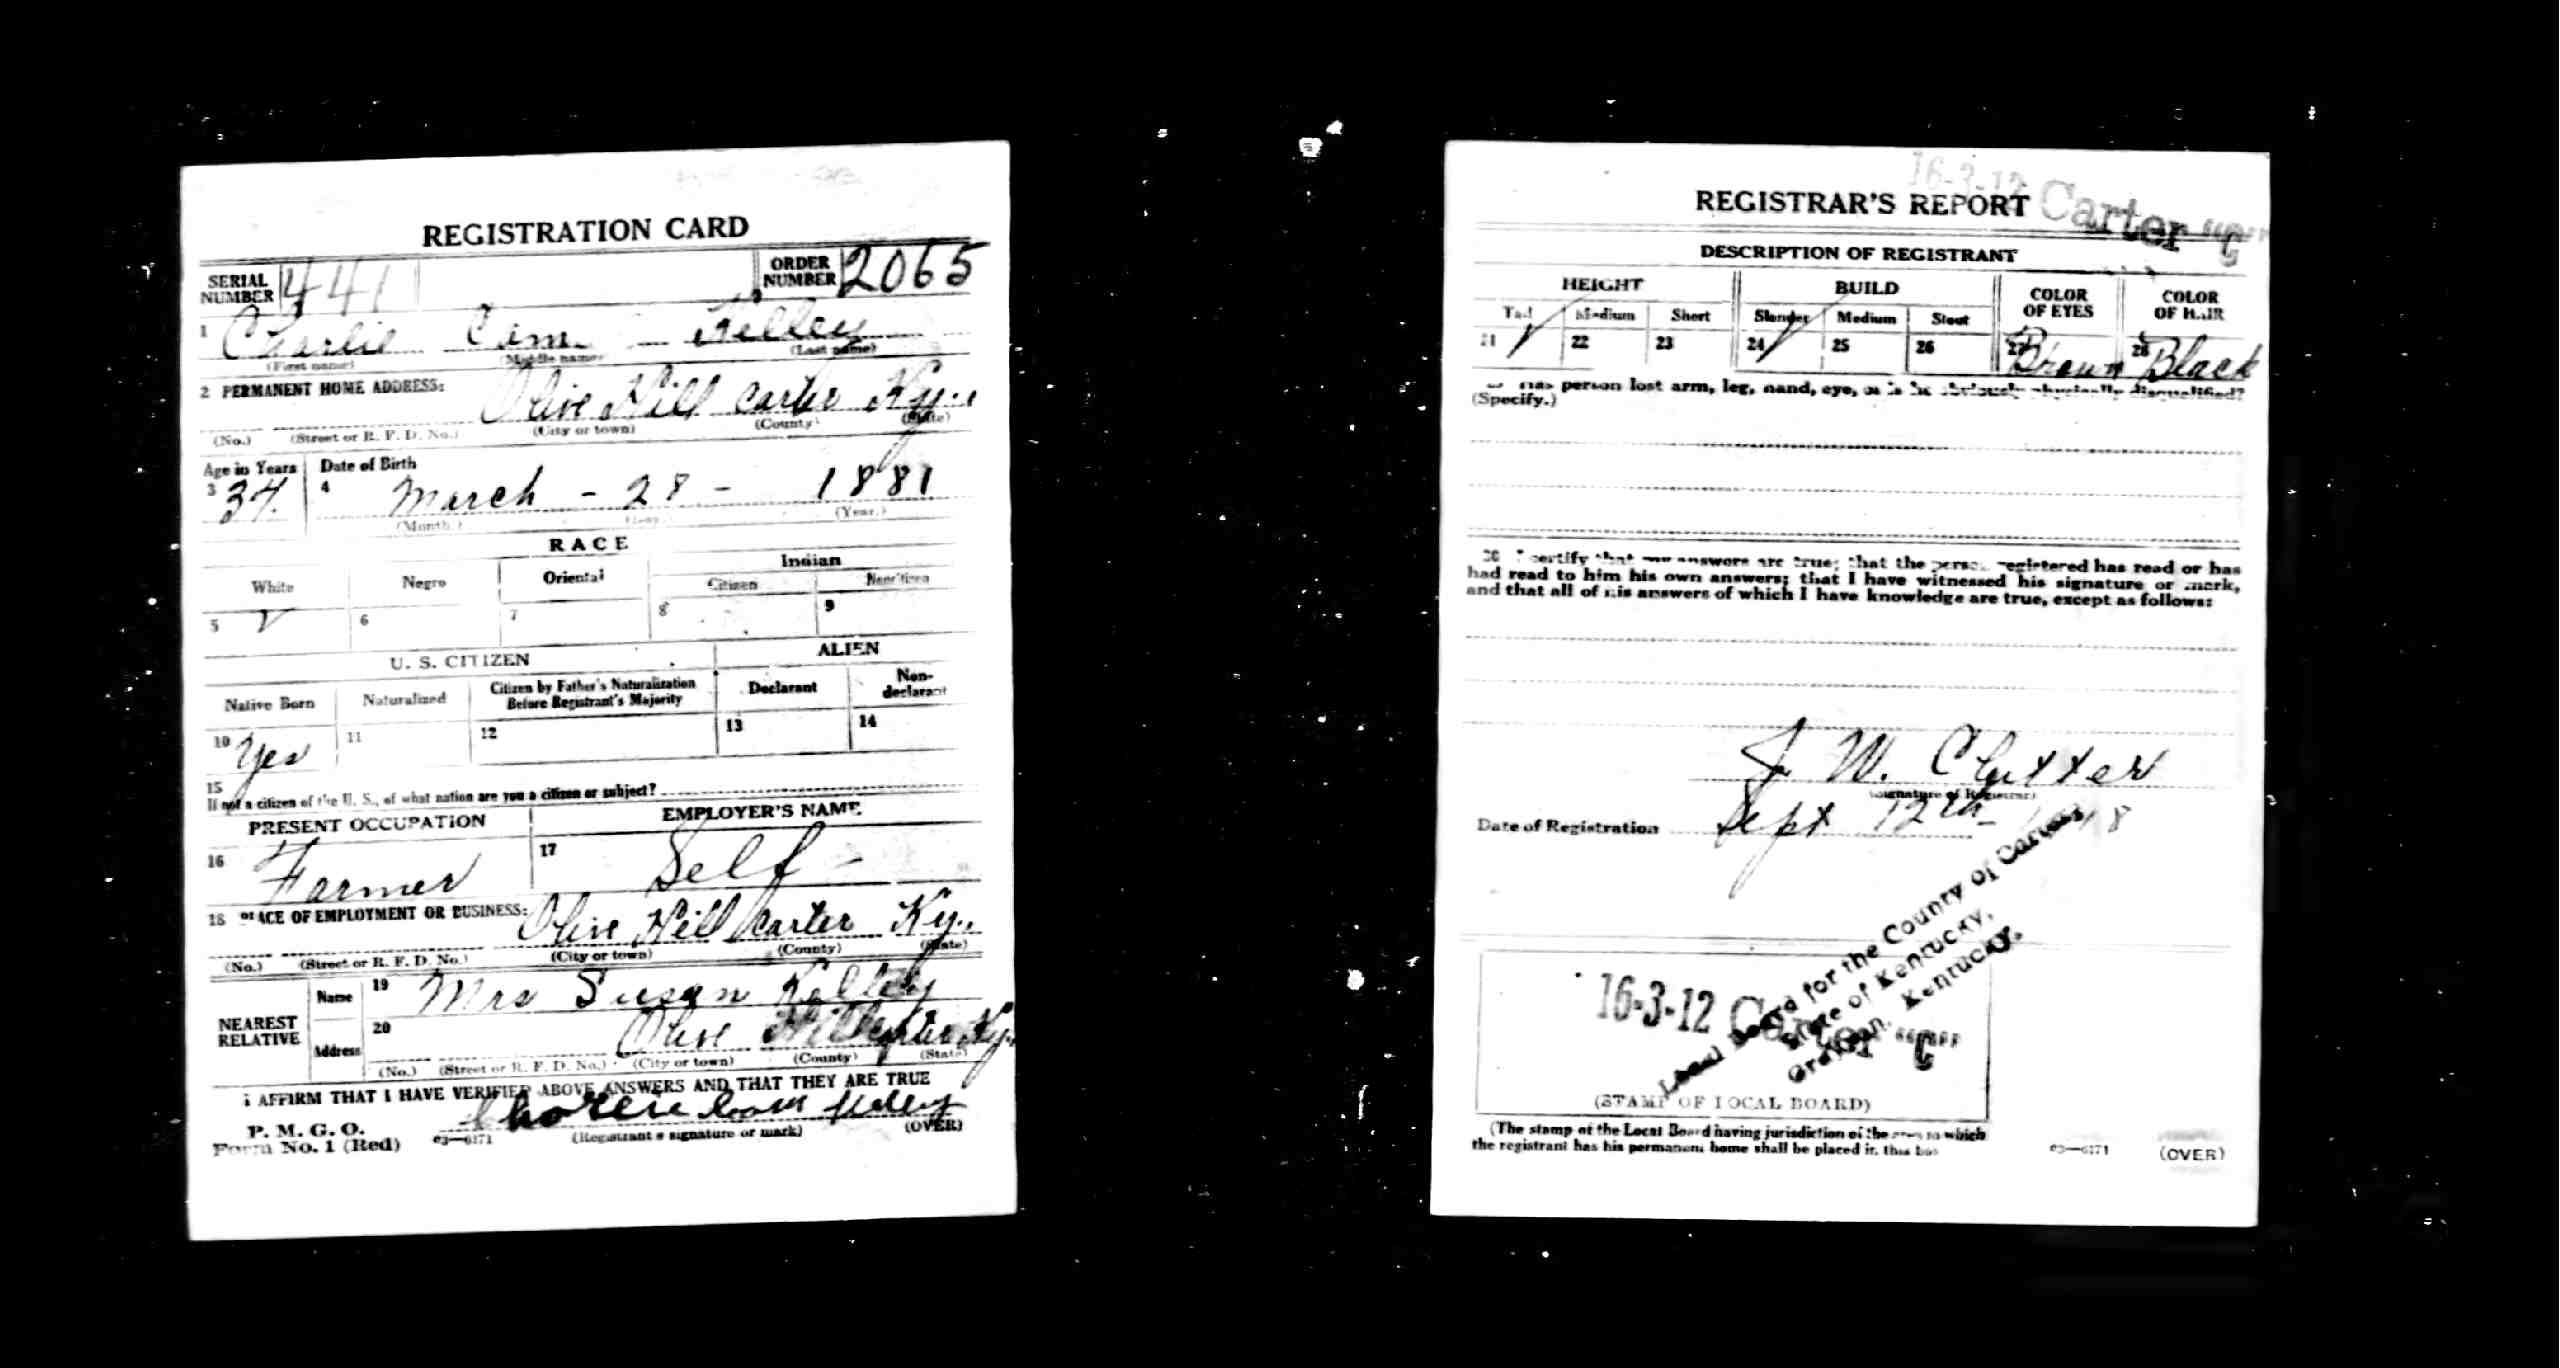 REGISTRATION CARD
SERIAL NUMBER 441 ORDER NUMBER 2065
1 Charlie Cam Kelley
(First name) (Middle name) (Last name)
2 PERMANENT HOME ADDRESS:
Olive Hill Carter Ky.
(No.) (Street or R. F. D. No.) (City or town) (County) (State)
Age in Years Date of Birth
3 37 4 March - 28 - 1881
(Month.) (Day.) (Year.)
RACE
White Negro Oriental Indian
Citizen Noncitizen
5 ✓ 6 7 8 9
U. S. CITIZEN ALIEN
Native Born Naturalized Citizen by Father's Naturalization Before Registrant's Majority Declarant Non-declarant
10 Yes 11 12 13 14
15 If not a citizen of the U. S., of what nation are you a citizen or subject?
PRESENT OCCUPATION EMPLOYER'S NAME
16 Farmer 17 Self -
18 PLACE OF EMPLOYMENT OR BUSINESS:
Olive Hill Carter Ky.
(No.) (Street or R. F. D. No.) (City or town) (County) (State)
NEAREST RELATIVE Name 19 Mrs Susan Kelley
Address 20 Olive Hill Carter Ky.
(No.) (Street or R. F. D. No.) (City or town) (County) (State)
I AFFIRM THAT I HAVE VERIFIED ABOVE ANSWERS AND THAT THEY ARE TRUE
P. M. G. O.
Form No. 1 (Red) 03—6171 (Registrant's signature or mark) (OVER)
16-3-12 Carter "C"
REGISTRAR'S REPORT
DESCRIPTION OF REGISTRANT
HEIGHT BUILD COLOR OF EYES COLOR OF HAIR
Tall Medium Short Slender Medium Stout
21 ✓ 22 23 24 ✓ 25 26 27 Brown 28 Black
Has person lost arm, leg, hand, eye, or is he obviously physically disqualified?
(Specify.)
30 I certify that my answers are true; that the person registered has read or has
had read to him his own answers; that I have witnessed his signature or mark,
and that all of his answers of which I have knowledge are true, except as follows:
J. W. Clutter
(Signature of Registrar)
Date of Registration Sept 12th 1918
Local Board for the County of Carter,
State of Kentucky,
Grayson, Kentucky.
16-3-12 Carter "C"
(STAMP OF LOCAL BOARD)
(The stamp of the Local Board having jurisdiction of the area in which
the registrant has his permanent home shall be placed in this box
03—6171 (OVER)